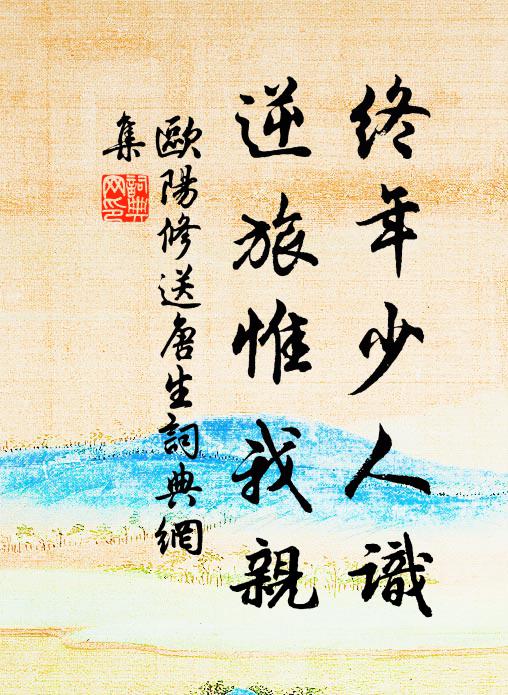 終年少人識
逆旅惟我親
歐陽修送唐生詞典網
集
詞典
网印